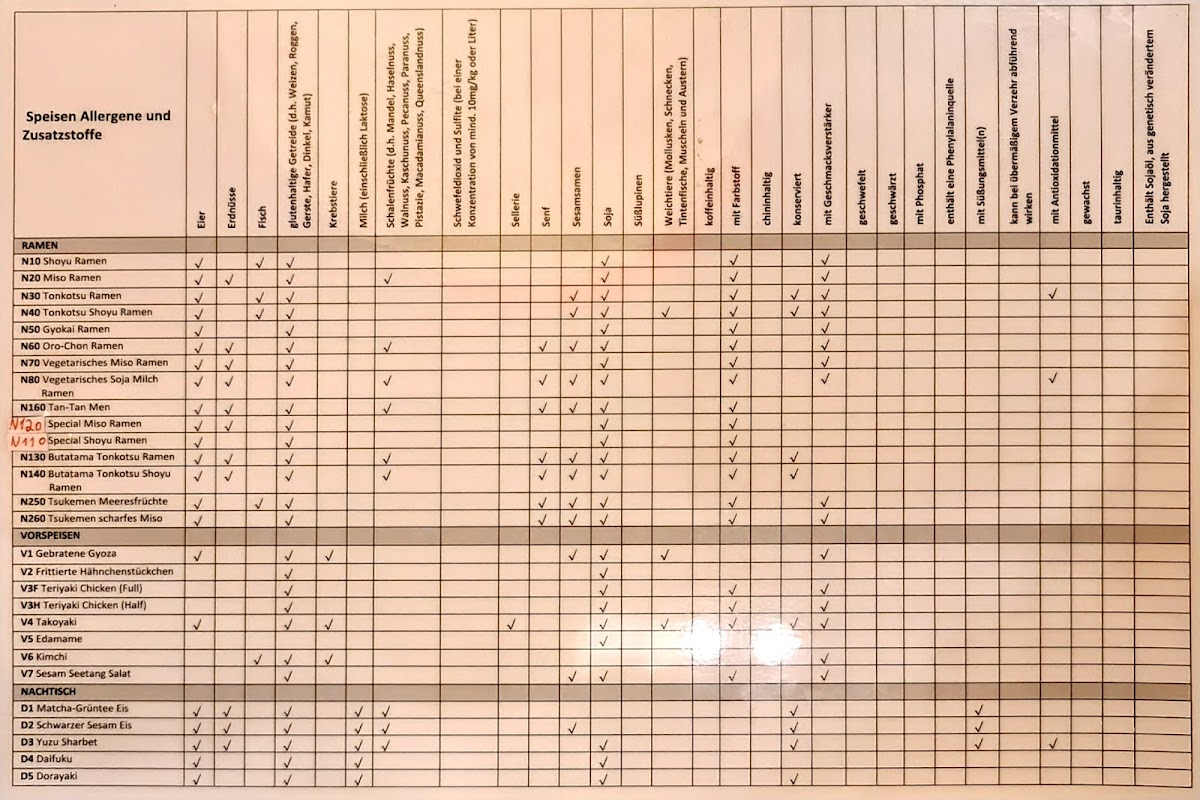 Speisen Allergene und
Zusatzstoffe
Eier
Erdnüsse
Fisch
glutenhaltige Getreide (d.h. Weizen, Roggen,
Gerste, Hafer, Dinkel, Kamut)
Krebstiere
Milch (einschließlich Laktose)
Schalenfrüchte (d.h. Mandel, Haselnuss,
Walnuss, Kaschunuss, Pecanuss, Paranuss,
Pistazie, Macadamianuss, Queenslandnuss)
Schwefeldioxid und Sulfite (bei einer
Konzentration von mind. 10mg/kg oder Liter)
Sellerie
Senf
Sesamsamen
Soja
Süßlupinen
Weichtiere (Mollusken, Schnecken,
Tintenfische, Muscheln und Austern)
koffeinhaltig
mit Farbstoff
chininhaltig
konserviert
mit Geschmacksverstärker
geschwefelt
geschwärzt
mit Phosphat
enthält eine Phenylalaninquelle
mit Süßungsmittel(n)
kann bei übermäßigem Verzehr abführend
wirken
mit Antioxidationmittel
gewachst
taurinhaltig
Enthält Sojaöl, aus genetisch verändertem
Soja hergestellt
RAMEN
N10 Shoyu Ramen √ √ √ √ √ √
N20 Miso Ramen √ √ √ √ √ √ √
N30 Tonkotsu Ramen √ √ √ √ √ √ √ √ √
N40 Tonkotsu Shoyu Ramen √ √ √ √ √ √ √ √ √
N50 Gyokai Ramen √ √ √ √ √
N60 Oro-Chon Ramen √ √ √ √ √ √ √ √ √
N70 Vegetarisches Miso Ramen √ √ √ √ √ √
N80 Vegetarisches Soja Milch √ √ √ √ √ √ √ √ √ √
Ramen
N160 Tan-Tan Men √ √ √ √ √ √ √ √
N120 Special Miso Ramen √ √ √ √ √
N110 Special Shoyu Ramen √ √ √ √
N130 Butatama Tonkotsu Ramen √ √ √ √ √ √ √ √ √
N140 Butatama Tonkotsu Shoyu √ √ √ √ √ √ √ √ √
Ramen
N250 Tsukemen Meeresfrüchte √ √ √ √ √ √ √ √
N260 Tsukemen scharfes Miso √ √ √ √ √ √ √
VORSPEISEN
V1 Gebratene Gyoza √ √ √ √ √ √ √
V2 Frittierte Hähnchenstückchen √ √
V3F Teriyaki Chicken (Full) √ √ √ √
V3H Teriyaki Chicken (Half) √ √ √ √
V4 Takoyaki √ √ √ √ √ √ √ √ √
V5 Edamame √
V6 Kimchi √ √ √ √
V7 Sesam Seetang Salat √ √ √ √ √
NACHTISCH
D1 Matcha-Grüntee Eis √ √ √ √ √ √ √
D2 Schwarzer Sesam Eis √ √ √ √ √ √ √ √
D3 Yuzu Sharbet √ √ √ √ √ √ √ √ √
D4 Daifuku √ √ √ √
D5 Dorayaki √ √ √ √ √